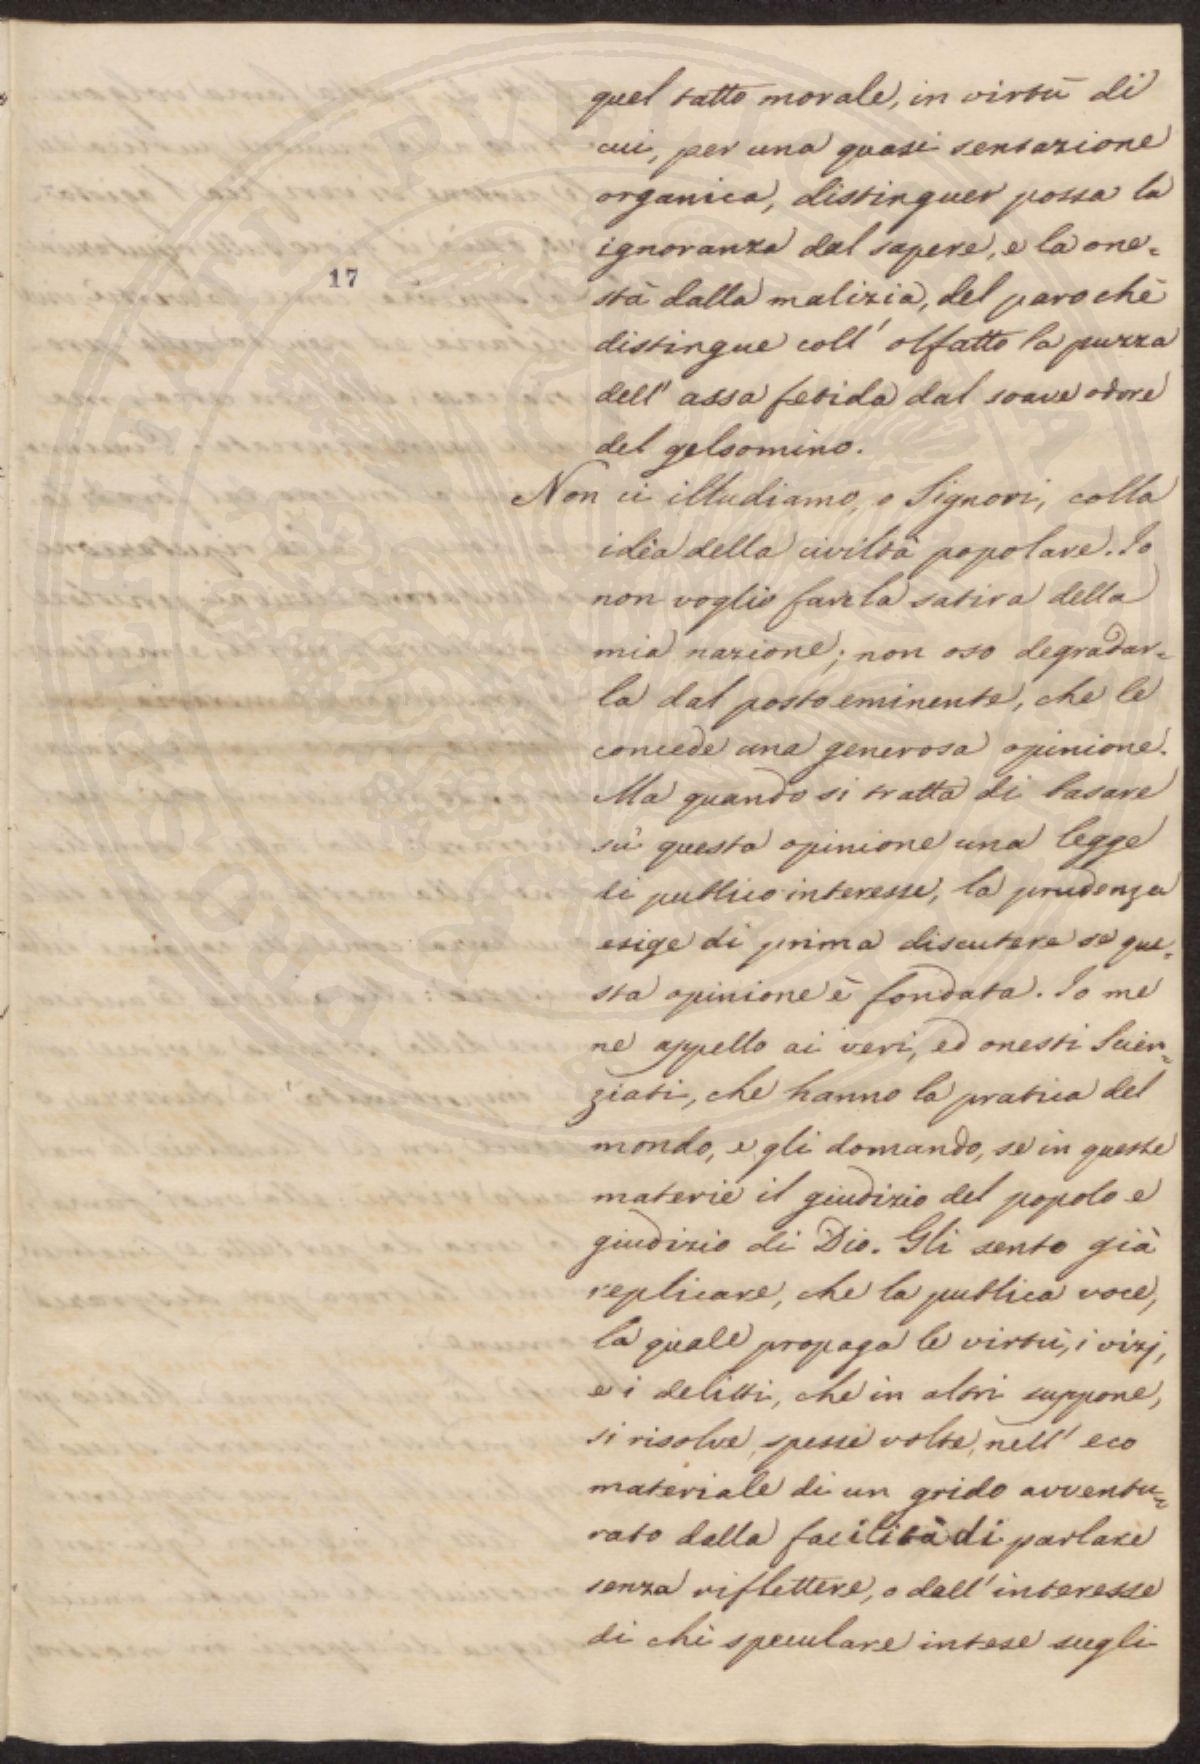 17
quel tatto morale, in virtù di
cui, per una quasi sensazione
organica, distinguer possa la
ignoranza dal sapere, e la one=
stà dalla malizia, del paro chè
distingue coll' olfatto la puzza
dell' assa fetida dal soave odore
del gelsomino.
Non ci illudiamo, o Signori, colla
idèa della civiltà popolare. Io
non voglio far la satira della
mia nazione; non oso degradar=
la dal posto eminente, che le
concede una generosa opinione.
Ma quando si tratta di basare
sù questa opinione una legge
di publico interesse, la prudenza
esige di prima discutere se que=
sta opinione è fondata. Io me
ne appello ai veri, ed onesti Scien=
ziati, che hanno la pratica del
mondo, e gli domando, se in queste
materie il giudizio del popolo e
giudizio di Dio. Gli sento già
replicare, che la publica voce,
la quale propaga le virtù, i vizj,
e i delitti, che in altri suppone,
si risolve, spesse volte, nell' eco
materiale di un grido avventu=
rato dalla facilità di parlare
senza riflettere, o dall' interesse
di chi speculare intese sugli